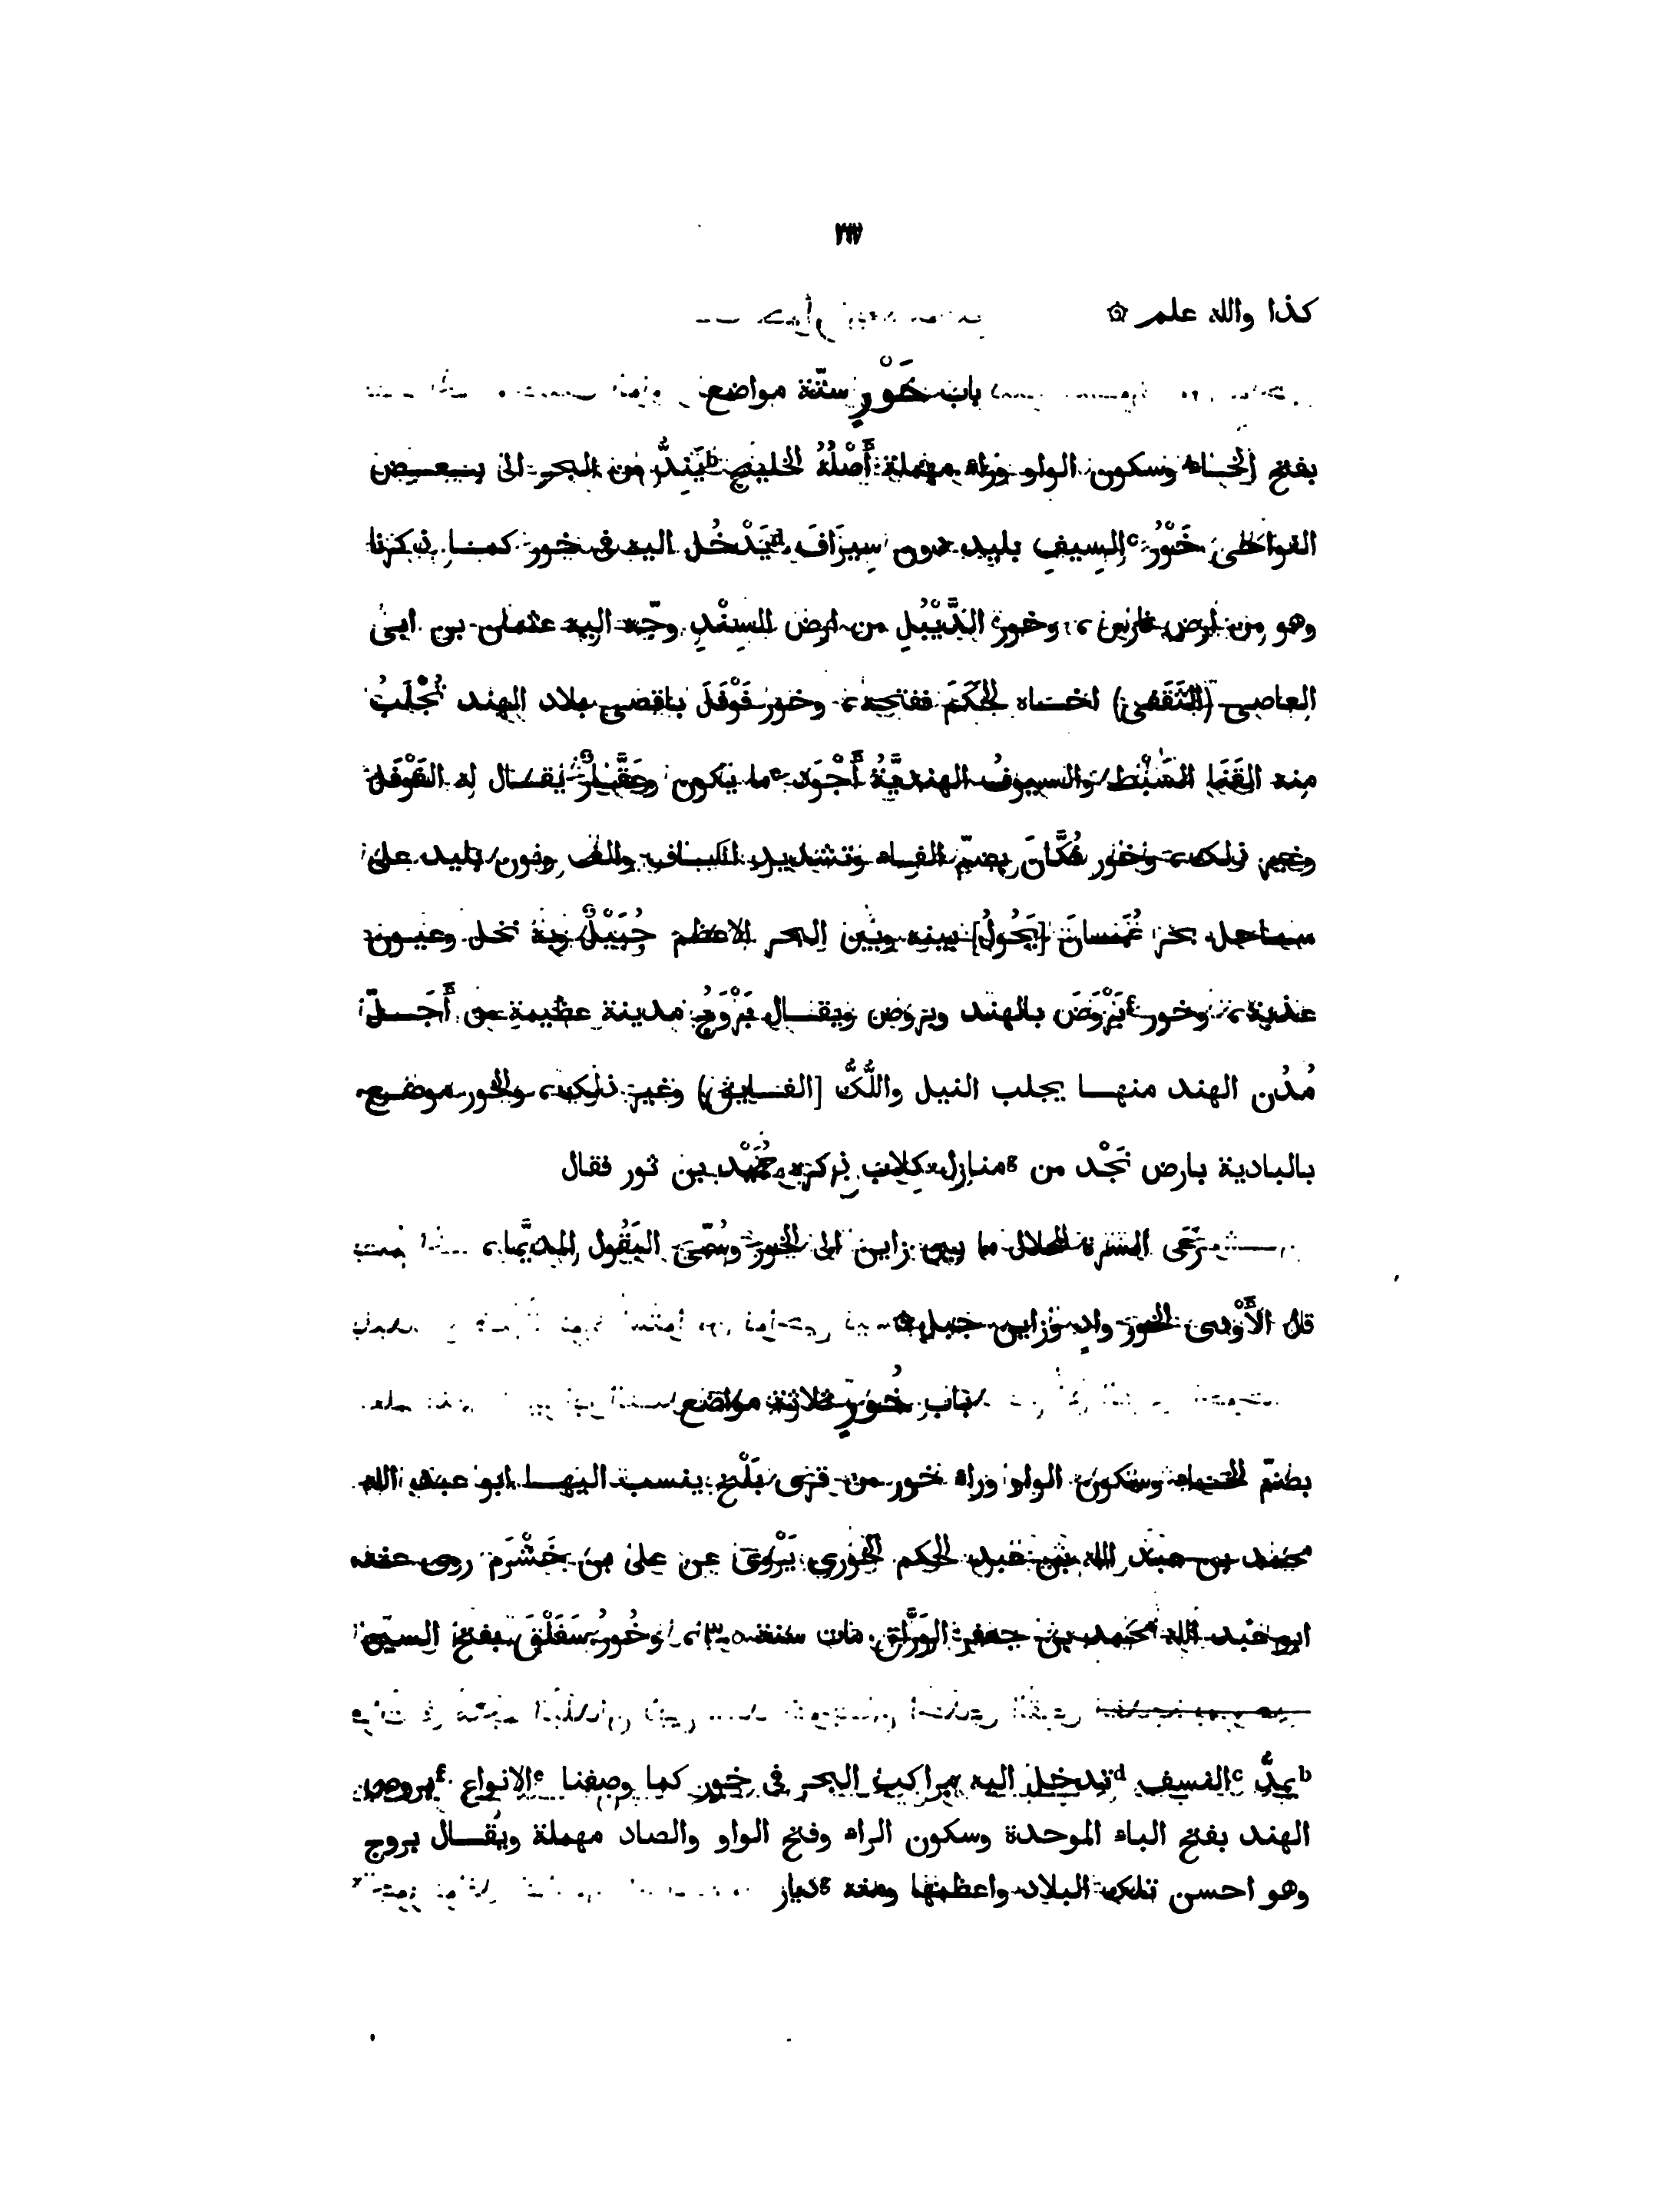 كذا والله علم ۞
باب خَوْرٍ ستّة مواضع
بفتح الخاء وسكون الواو وراء مهملة أَصْلُهُ الخليج bيَنِدُّ من البحر الى بعض
النواحى خَوْرُ cالسِيفِ بليد دون سِيرَافَ dيَدْخُل اليه فى خور كما ذكرنا
وهو من ارض فارس، وخور الدَّيْبُلِ من ارض السِنْدِ وجّه اليه عثمان بن ابى
العاصى (الثَقَفى) اخاه الحَكَمَ ففتحه، وخور فَوْفَلَ باقصى بلاد الهند تُجْلَبُ
منه القَنَا السَبْط والسيوفُ الهنديَّةُ أَجْوَد eما يكون وعَقَّارٌ يقال له الفَوْفَل
وغير ذلك، وخور فُكَّانَ بضمّ الفاء وتشديد الكاف والف ونون بليد على
ساحل بحر عُمَانَ [يَحُولُ] بينه وبين البحر الاعظم جُبَيْلٌ وبه نخل وعيون
عذبة، وخور fبَرْوَصَ بالهند وبروص ويقال بَرْوَجُ مدينة عظيمة من أَجَلّ
مُدُن الهند منها يجلب النيل واللُّكُّ [الفايق) وغير ذلك، والخور موضع
بالبادية بارض نَجْد من gمنازل كلاب ذكره حُمَيْد بن ثور فقال
رَعَى السرة المحلال ما بين زابن الى الخور وسْمِىّ البَقُول المديَّما،
قال الأَوْدى الخور وادٍ وزابن جبل ۞
باب خُورٍ ثلاثة مواضع
بضمّ الخاء وسكون الواو وراء خور من قرى بَلْخ ينسب اليها ابو عبد الله
محمد بن عبد الله بن عبد الحكم الخُورى يَرْوى عن على بن خَشْرَم روى عنه
ابو عبد الله محمد بن جعفر الوَرَّاق مات سنة ٣٠٥، وخُورُ سَفَلْقَ بفتح السين
bيمدُّ cالفسف dتدخل اليه مراكب البحر فى خور كما وصفنا eالانواع fبروص
الهند بفتح الباء الموحدة وسكون الراء وفتح الواو والصاد مهملة ويُقال بروج
وهو احسن تلك البلاد واعظمها ومنه gديار